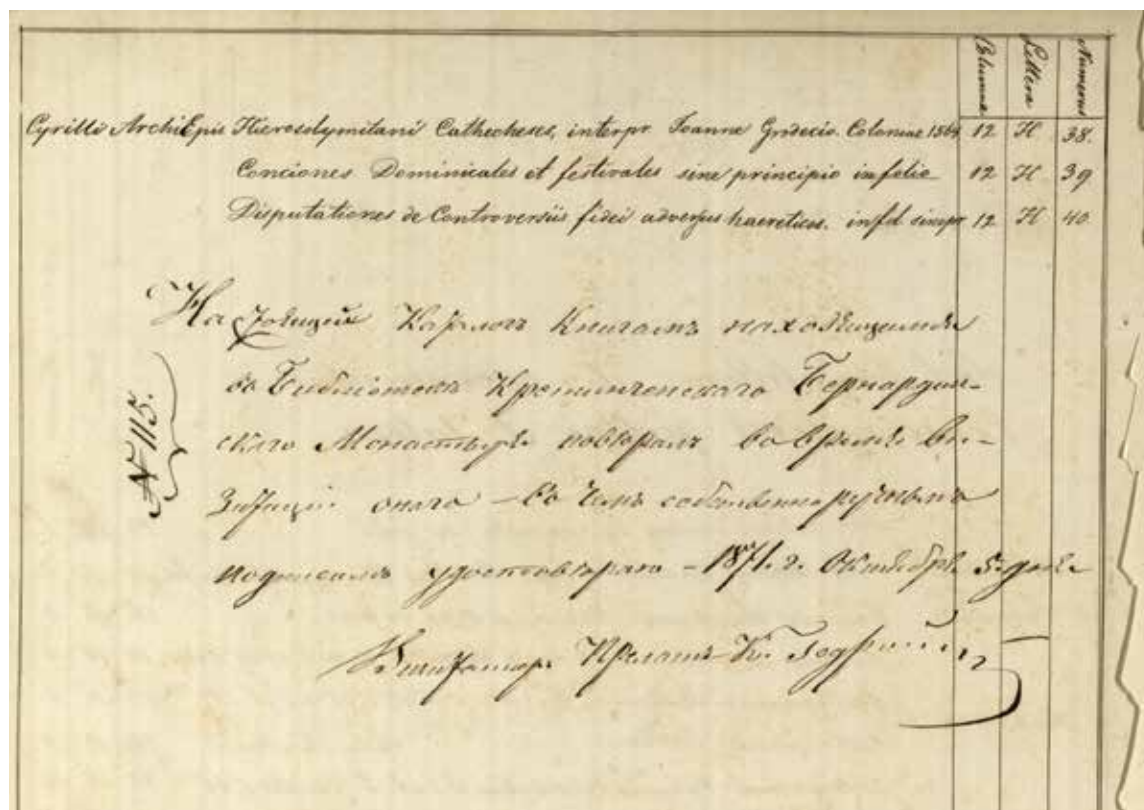 Columna Littera Numerus
Cyrilli ArchiEpis Hierosolymitani Cathecheses, interpr Joanne Grodecio. Coloniae 1564 12 H 38.
Conciones Dominicales et festivales sine principio in folio 12 H 39
Disputationes de Controversiis fidei adversus haereticos. in fol sine pr 12 H 40
Настоящий Каталогъ Книгамъ находящимся
въ Библіотекѣ Кретингенскаго Бернардин-
скаго Монастыря повѣрялъ во время ви-
№ 115.
зитаціи онаго – въ чемъ собственноручнымъ
подписомъ удостовѣряю – 1871. г. Октября 5 дня
Визитаторъ Прелатъ Кн. Гедройц